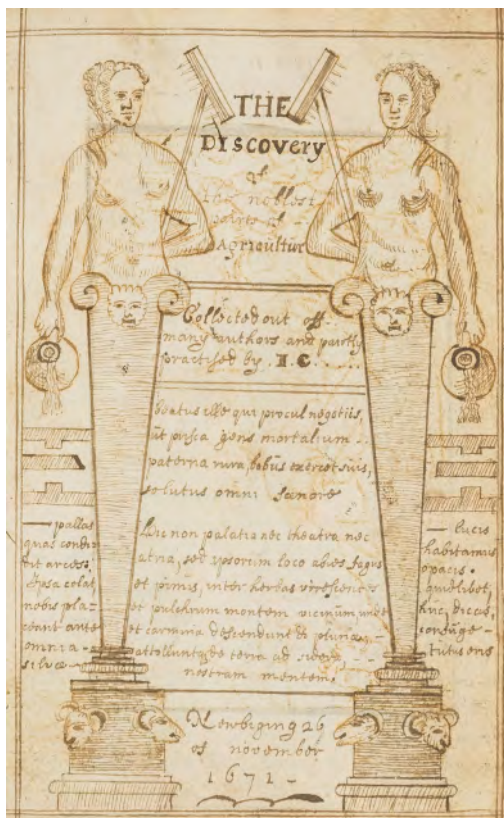 THE
Discovery
of
The noblest
parte of
Agricultur
Collected out off
many authors and partly
practised by . I. C. . . . . .
Beatus ille qui procul negotiis,
ut prisca gens mortalium . .
paterna rura, bobus exercet suis,
solutus omni fanore
Hic non palatia nec theatra nec
atria, sed ipsorum loco abies fagus
et pinus, inter herbas virescentes
et pulchrum montem vicinum unde
et carmina descendunt et
attolluntque de terra ad
nostram mentem.
— pallas
quas condi-
dit arces,
Ipsa colat,
nobis pla-
ceant ante
omnia - a
silvæ —
— lucis
habitamus
opacis .
quidlibet,
huc, dicas,
tutus eris
Newbiging 26
of november
1671 -